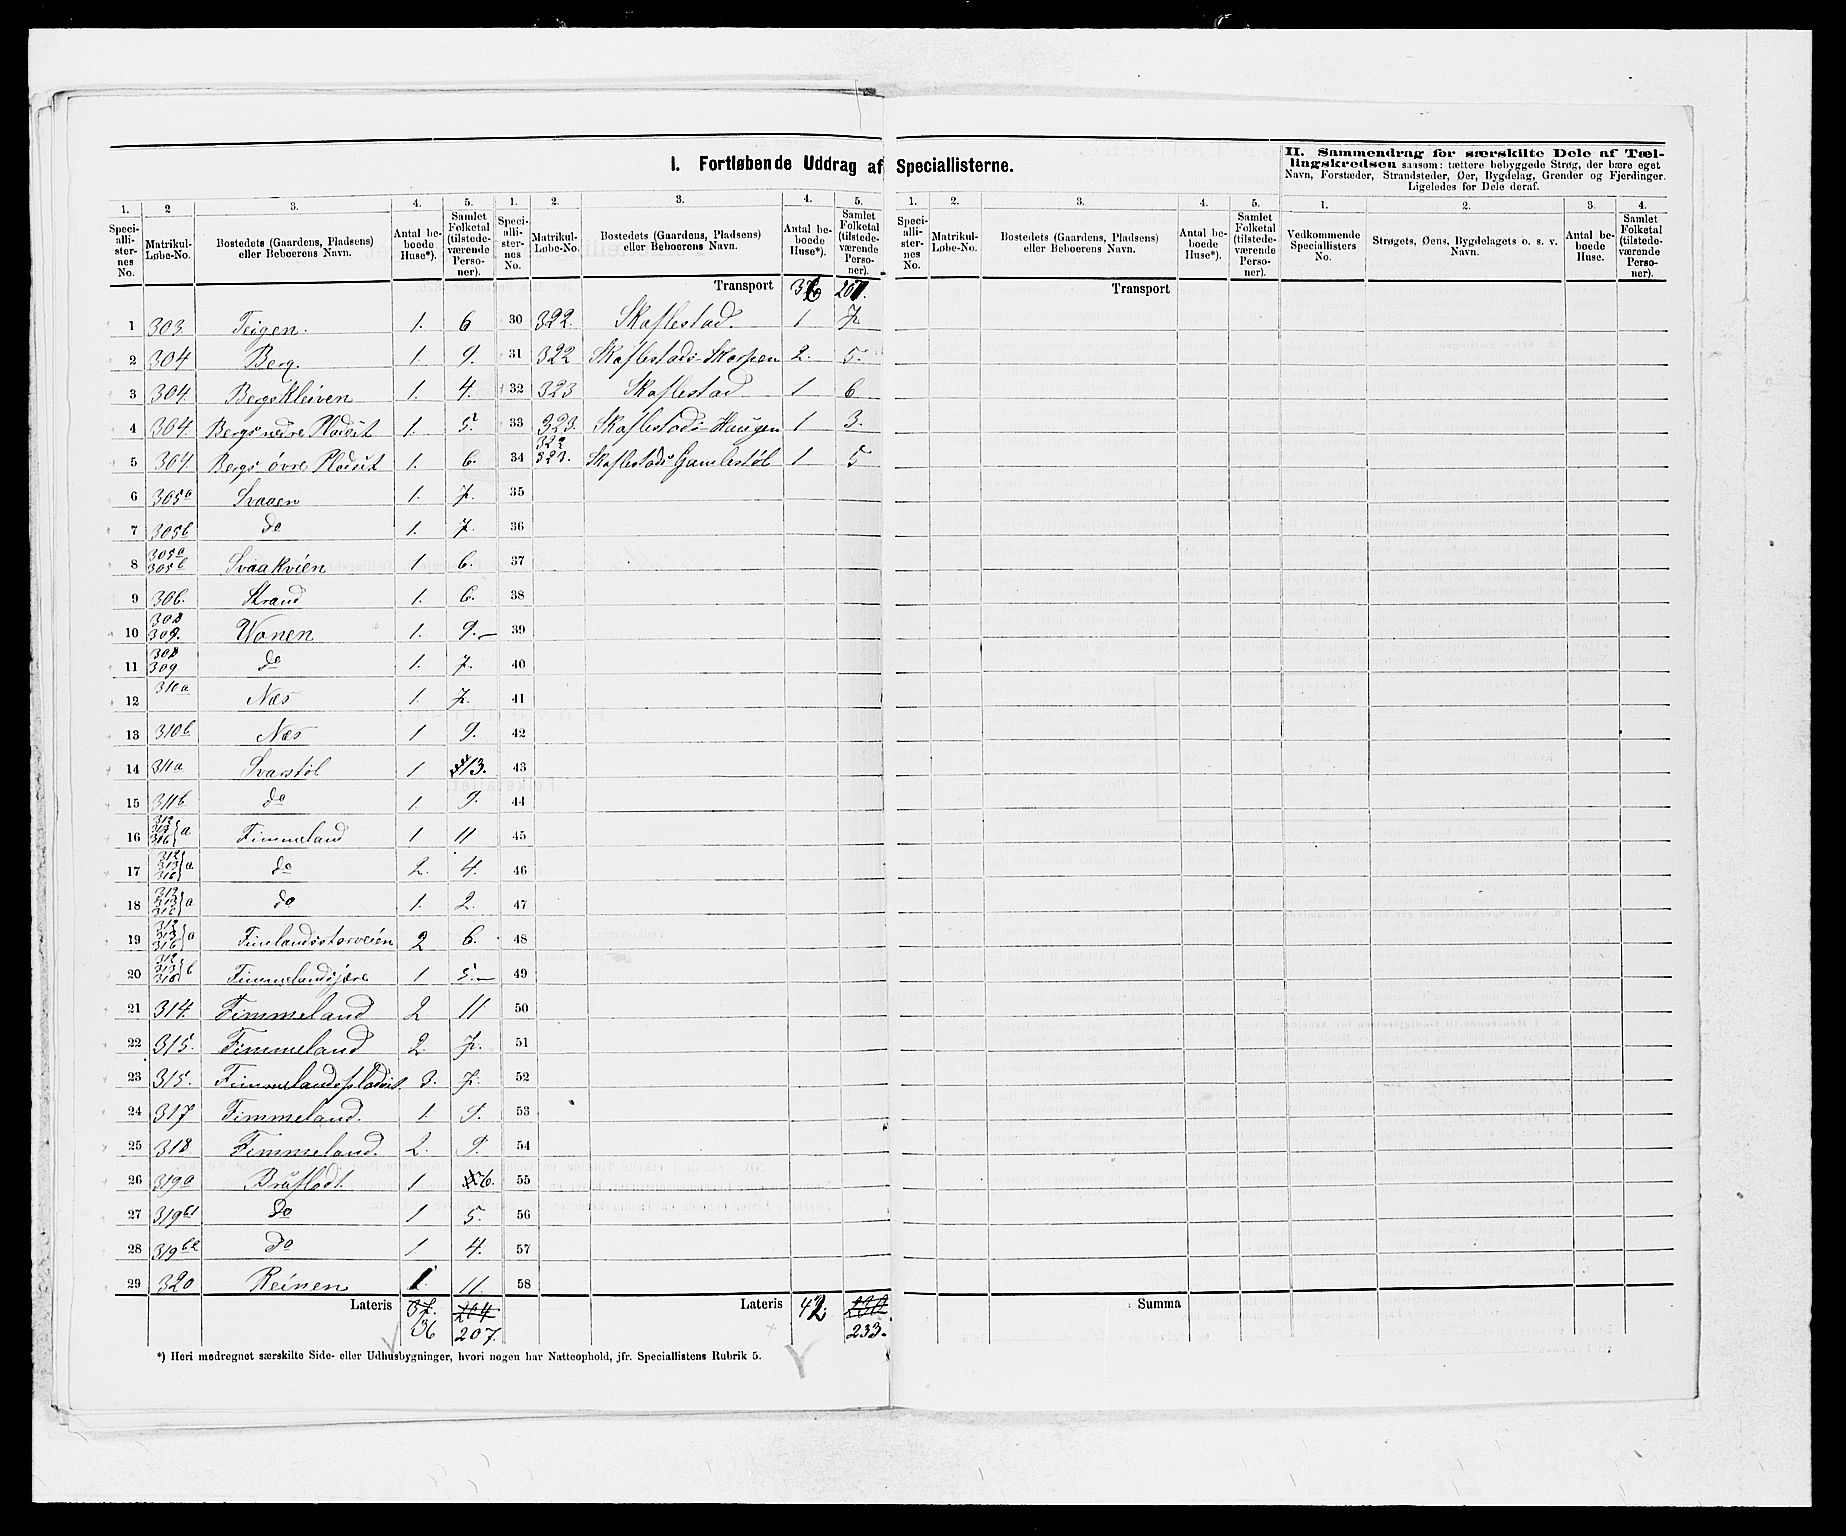 I. Fortløbende Uddrag af Speciallisterne.
II. Sammendrag for særskilte Dele af Tæl-
lingskredsen saasom: tættere bebyggede Strøg, der bære eget
Navn, Forstæder, Strandsteder, Øer, Bygdelag, Grender og Fjerdinger.
Ligeledes for Dele deraf.
1. 2 3. 4. 5. 1. 2. 3. 4. 5. 1. 2. 3. 4. 5. 1. 2. 3. 4.
Speci-alli-ster-nes No. Matrikul-Løbe-No. Bostedets (Gaardens, Pladsens) eller Beboerens Navn. Antal be-boede Huse*). Samlet Folketal (tilstede-værende Perso-ner).
Speci-alli-ster-nes No. Matrikul-Løbe-No. Bostedets (Gaardens, Pladsens) eller Beboerens Navn. Antal be-boede Huse*). Samlet Folketal (tilstede-værende Perso-ner).
Speci-alli-ster-nes No. Matrikul-Løbe-No. Bostedets (Gaardens, Pladsens) eller Beboerens Navn. Antal be-boede Huse*). Samlet Folketal (tilstede-værende Perso-ner).
Vedkommende Speciallisters No. Strøgets, Øens, Bygdelagets o. s. v. Navn. Antal be-boede Huse. Samlet Folketal (tilstede-værende Perso-ner).
Transport 36 207. Transport
1 303 Teigen. 1. 6 30 322. Skaflestad. 1 7
2 304 Berg. 1. 9. 31 322 Skaflestads-Skorpen 2. 5.
3 304. Bergskleiven 1. 4. 32 323 Skaflestad 1 6
4 304. Bergs nedre Pladsit 1. 5. 33 323. Skaflestads-Haugen 1 3.
5 304 Bergs övre Pladsit 1. 6. 34 322 323. Skaflestads Gamlestøl 1 5
6 305a Svaaen 1. 7. 35
7 305b do 1. 7. 36
8 305a 305b Svaakvien 1 6. 37
9 306. Strand 1. 6. 38
10 308 309. Vonen 1. 9. 39
11 308 309 do 1. 7. 40
12 310a Næs 1. 7. 41
13 310b Næs 1 9. 42
14 311a Svarstöl 1 13. 43
15 311b do 1. 9. 44
16 312 313 316 } a Fimmeland 1 11 45
17 312 313 316 } a do 2. 4. 46
18 312 313 316 } a do 1. 2. 47
19 312 313 316 } a Fimlandsstorveien 2 6. 48
20 312 313 316 } b Fimmelandsjøre 1 5. 49
21 314. Fimmeland 2 11 50
22 315. Fimmeland 2. 7. 51
23 315. Fimmelandspladsit. 3. 7. 52
24 317 Fimmeland. 1. 9. 53
25 318. Fimmeland. 2. 9. 54
26 319a Bruflodt. 1 6. 55
27 319b1 do 1 5. 56
28 319b2 do 1. 4. 57
29 320 Reinen 1. 11. 58
Lateris 37. 204 Lateris 42. 230 Summa
36 207. 233.
*) Heri medregnet særskilte Side- eller Udhusbygninger, hvori nogen har Natteophold, jfr. Speciallistens Rubrik 5.